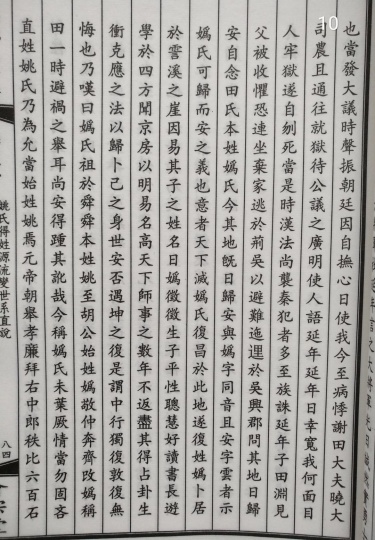 也當發大議時聲振朝廷因自撫心曰使我今至病悸謝田大夫曉大
司農且通往就獄待公議之廣明使人語延年延年曰幸寬我何面目
人牢獄遂自刎死當是時漢法尚襲秦犯者多至族誅延年子田淵見
父被收懼恐連坐棄家逃於荊吳以避難迤逕於吳興郡問其地曰歸
安自念田氏本姓媯氏今其地既曰歸安與媯字同音且安字雲者示
媯氏可歸而安之義也意者天下滅媯氏復昌於此地遂復姓媯卜居
於霅溪之崖因易其子之姓名曰媯徵徵生子平性聰慧好讀書長遊
學於四方聞京房以明易名高天下師事之數年不返盡其得占卦生
衝克應之法以歸卜己之身世安否遇坤之復是謂中行獨復敦復無
悔也乃嘆曰媯氏祖於舜舜本姓姚至胡公始姓媯敬仲奔齊改媯稱
田一時避禍之舉耳尚安得踵其訛哉今稱媯氏未葉厥情當勿固吝
直姓姚氏乃為允當始姓姚焉元帝朝舉孝廉拜右中郎秩比六百石
姚氏得姓源流變世系直說
八四
10